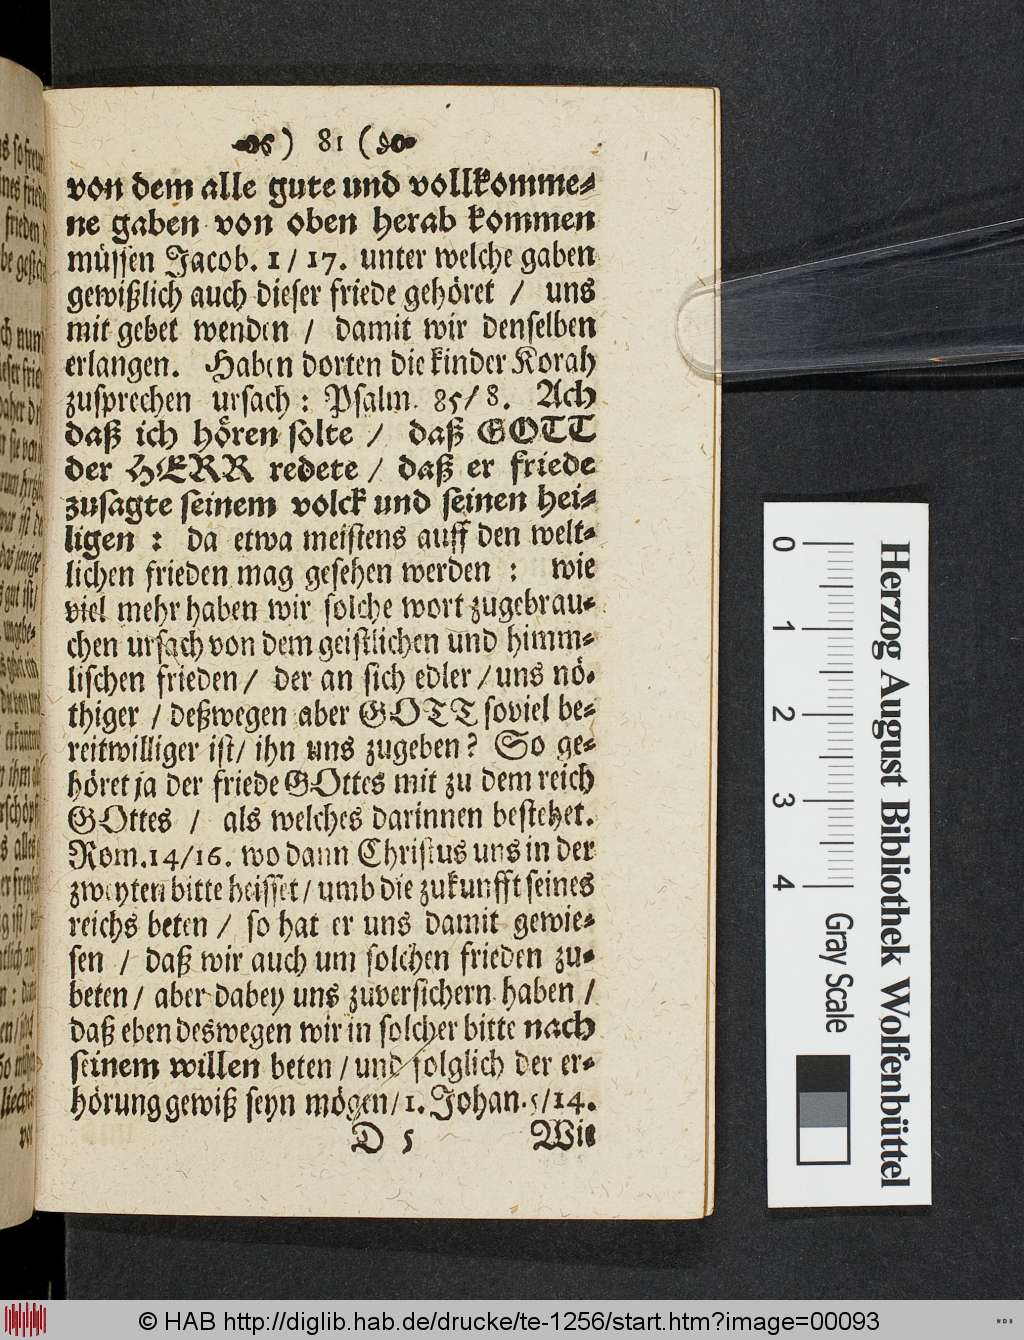 ) 81 (
von dem alle gute und vollkomme-
ne gaben von oben herab kommen
müssen Jacob. 1 / 17. unter welche gaben
gewißlich auch dieser friede gehöret / uns
mit gebet wenden / damit wir denselben
erlangen. Haben dorten die kinder Korah
zusprechen ursach : Psalm. 85 / 8. Ach
daß ich hören solte / daß GOTT
der HERR redete / daß er friede
zusagte seinem volck und seinen hei-
ligen : da etwa meistens auff den welt-
lichen frieden mag gesehen werden : wie
viel mehr haben wir solche wort zugebrau-
chen ursach von dem geistlichen und himm-
lischen frieden / der an sich edler / uns nö-
thiger / deßwegen aber GOTT soviel be-
reitwilliger ist / ihn uns zugeben ? So ge-
höret ja der friede GOttes mit zu dem reich
GOttes / als welches darinnen bestehet.
Rom. 14 / 16. wo dann Christus uns in der
zweyten bitte heisset / umb die zukunfft seines
reichs beten / so hat er uns damit gewie-
sen / daß wir auch um solchen frieden zu-
beten / aber dabey uns zuversichern haben /
daß eben deswegen wir in solcher bitte nach
seinem willen beten / und folglich der er-
hörung gewiß seyn mögen / 1. Johan. 5 / 14.
D 5 Wie
Herzog August Bibliothek Wolfenbüttel
0 1 2 3 4
Gray Scale
© HAB http://diglib.hab.de/drucke/te-1256/start.htm?image=00093